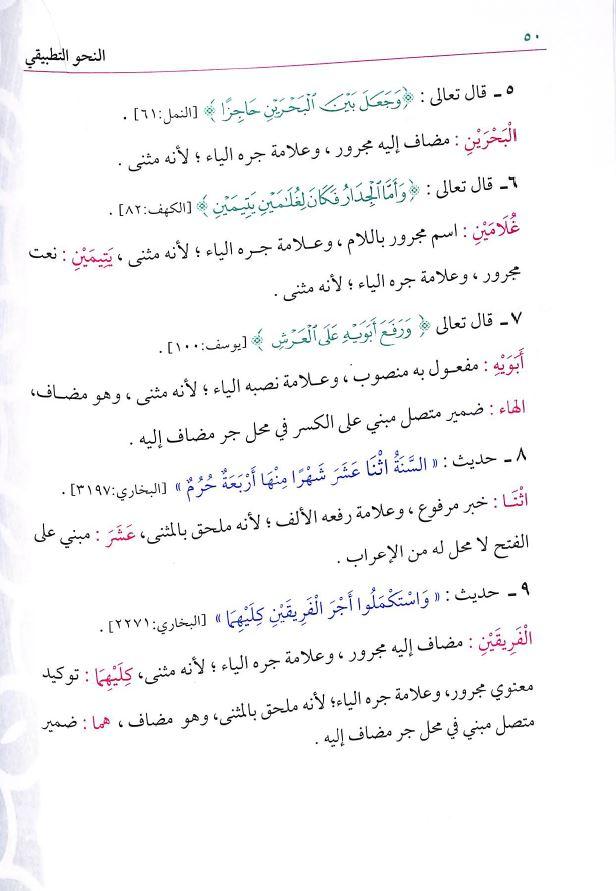 ٥٠
النحو التطبيقي
٥ـ قال تعالى : ﴿وَجَعَلَ بَيْنَ ٱلْبَحْرَيْنِ حَاجِزًا﴾ [النمل:٦١] .
الْبَحْرَيْنِ : مضاف إليه مجرور ، وعلامة جره الياء ؛ لأنه مثنى .
٦ـ قال تعالى : ﴿وَأَمَّا ٱلْجِدَارُ فَكَانَ لِغُلَٰمَيْنِ يَتِيمَيْنِ﴾ [الكهف:٨٢] .
غُلَامَيْنِ : اسم مجرور باللام ، وعلامة جره الياء ؛ لأنه مثنى ، يَتِيمَيْنِ : نعت
مجرور ، وعلامة جره الياء ؛ لأنه مثنى .
٧ـ قال تعالى ﴿ وَرَفَعَ أَبَوَيْهِ عَلَى ٱلْعَرْشِ ﴾ [يوسف:١٠٠] .
أَبَوَيْهِ : مفعول به منصوب ، وعلامة نصبه الياء ؛ لأنه مثنى ، وهو مضاف،
الهاء : ضمير متصل مبني على الكسر في محل جر مضاف إليه .
٨ـ حديث : « السَّنَةُ اثْنَا عَشَرَ شَهْرًا مِنْهَا أَرْبَعَةٌ حُرُمٌ » [البخاري:٣١٩٧] .
اثْنَا : خبر مرفوع ، وعلامة رفعه الألف ؛ لأنه ملحق بالمثنى، عَشَرَ : مبني على
الفتح لا محل له من الإعراب .
٩ـ حديث : « وَاسْتَكْمَلُوا أَجْرَ الْفَرِيقَيْنِ كِلَيْهِمَا » [البخاري:٢٢٧١] .
الْفَرِيقَيْنِ : مضاف إليه مجرور ، وعلامة جره الياء ؛ لأنه مثنى، كِلَيْهِمَا : توكيد
معنوي مجرور، وعلامة جره الياء؛ لأنه ملحق بالمثنى، وهو مضاف ، هما : ضمير
متصل مبني في محل جر مضاف إليه .